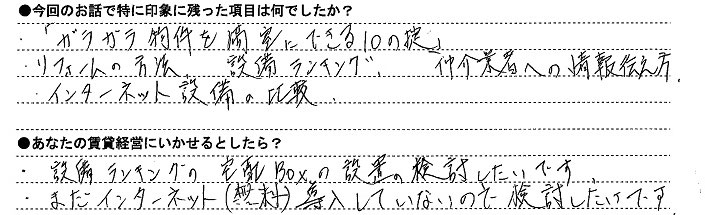 ●今回のお話で特に印象に残った項目は何でしたか？
・「ガラガラ物件を満室にできる10の掟」
・リフォームの方法、 設備ランキング、 仲介業者への情報伝え方、
・インターネット設備の比較、
●あなたの賃貸経営にいかせるとしたら？
・設備ランキングの宅配Boxの設置の検討したいです
・まだインターネット(無料)導入していないので検討したいです